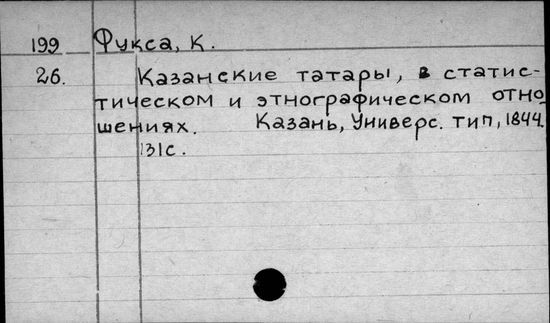 199 Фукса, К.
26. Казанские татары, в статис-
тическом и этнографическом отно
шениях. Казань, Универс. тип, 1844.
131с.